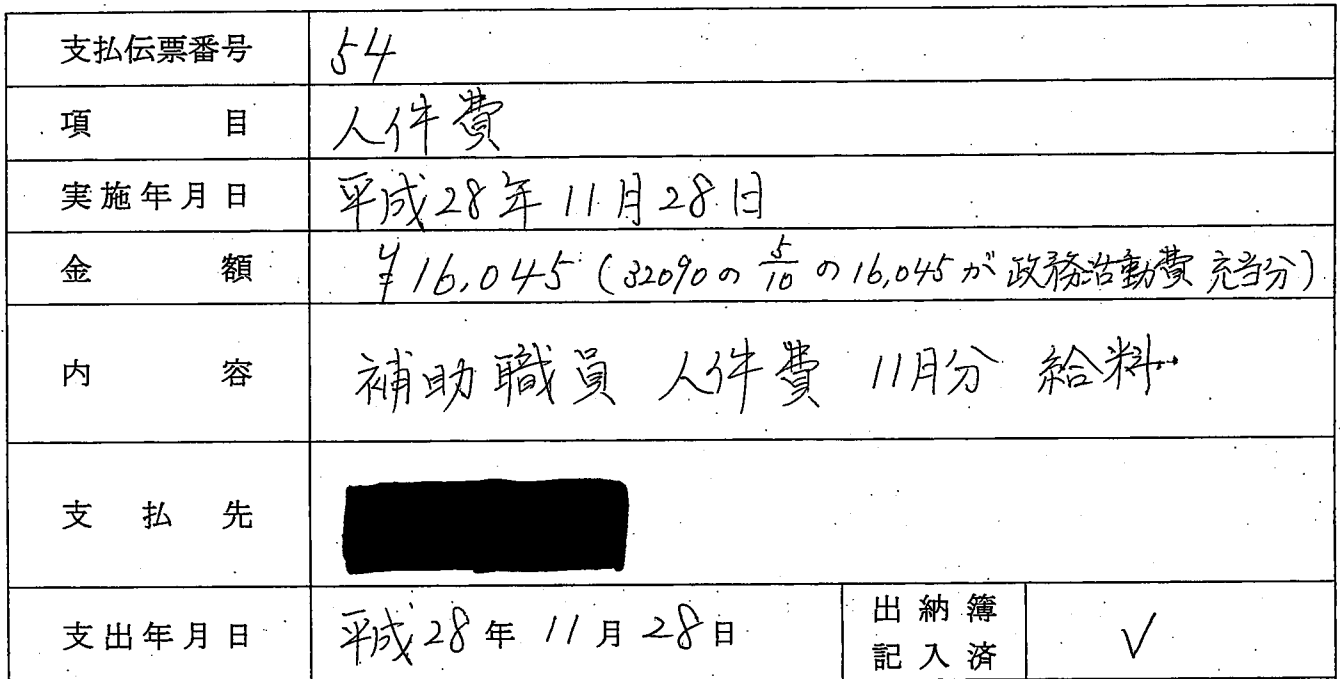 支払伝票番号 54
項目 人件費
実施年月日 平成28年11月28日
金額 ¥16,045 (32090の 5/10 の 16,045が 政務活動費 充当分)
内容 補助職員 人件費 11月分 給料
支払先
支出年月日 平成28年11月28日 出納簿記入済 ✓